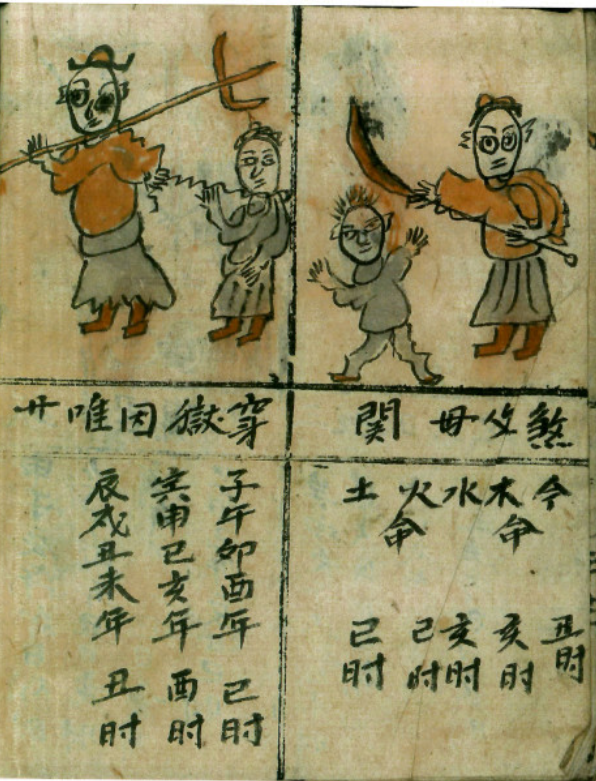 煞父母関
今 丑时
木命 亥时
水 亥时
火命 巳时
土 巳时
穿獄因唯廿
子午卯酉年 巳时
寅申巳亥年 酉时
辰戌丑未年 丑时